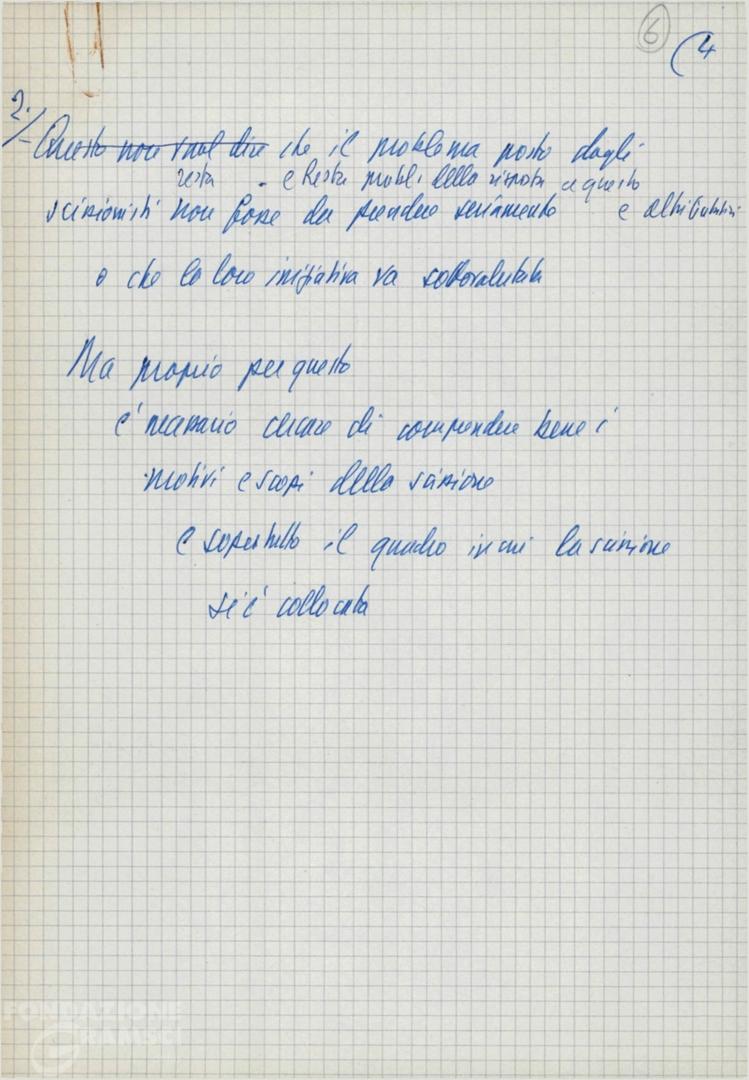 6
(4
2./
- Questo non vuol dire che il problema posto dagli
resta e Resta probl. della risposta a questo
scissionisti non fosse da prendere seriamente e altri
o che la loro iniziativa va sottovalutata
Ma proprio per questo
e' necessario cercare di comprendere bene i
motivi e scopi della scissione
e soprattutto il quadro in cui la scissione
si e' collocata
FONDAZIONE
GRAMSCI